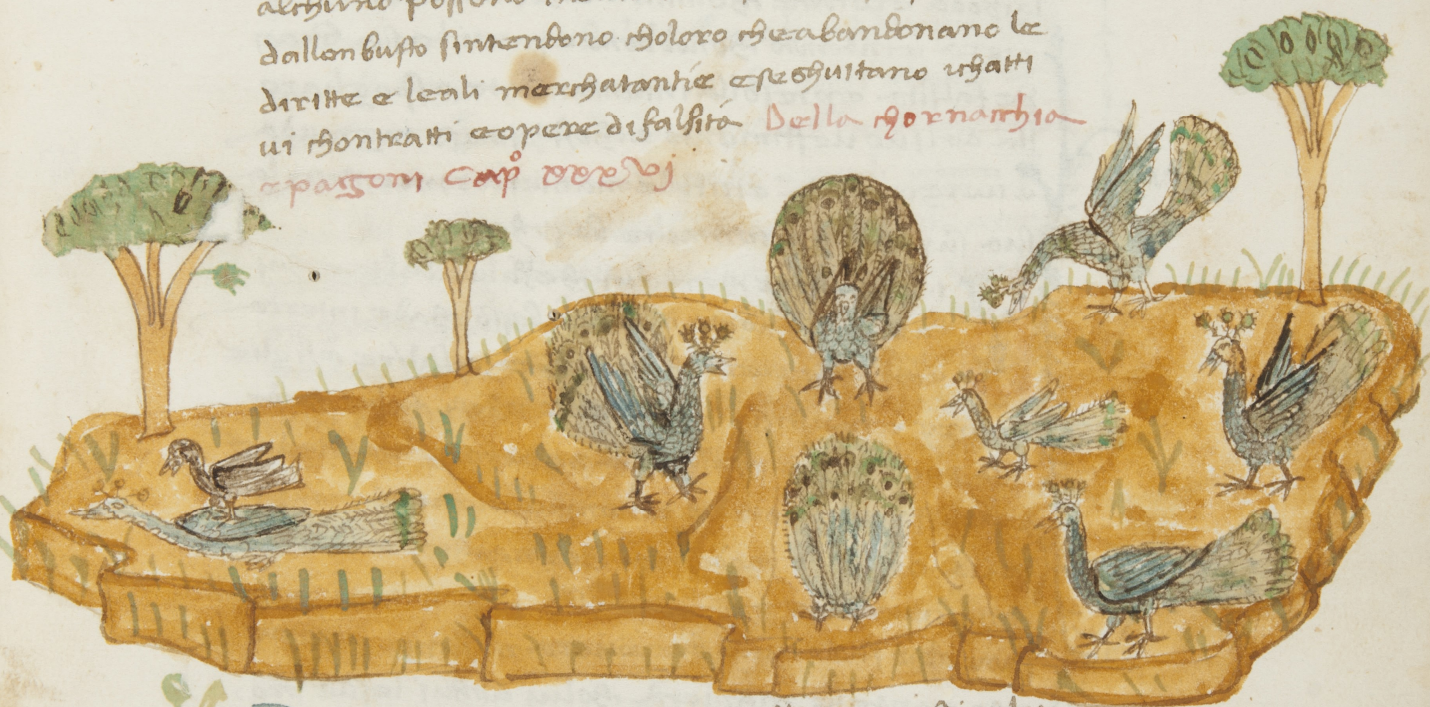 alchuno possono
dallonbusto sintendono choloro cheabandonano le
diritte e leali merchatantie eseghuitano ichatti
vi chontratti eopere di falsità Della chornacchia
epagoni Capº xxxvj